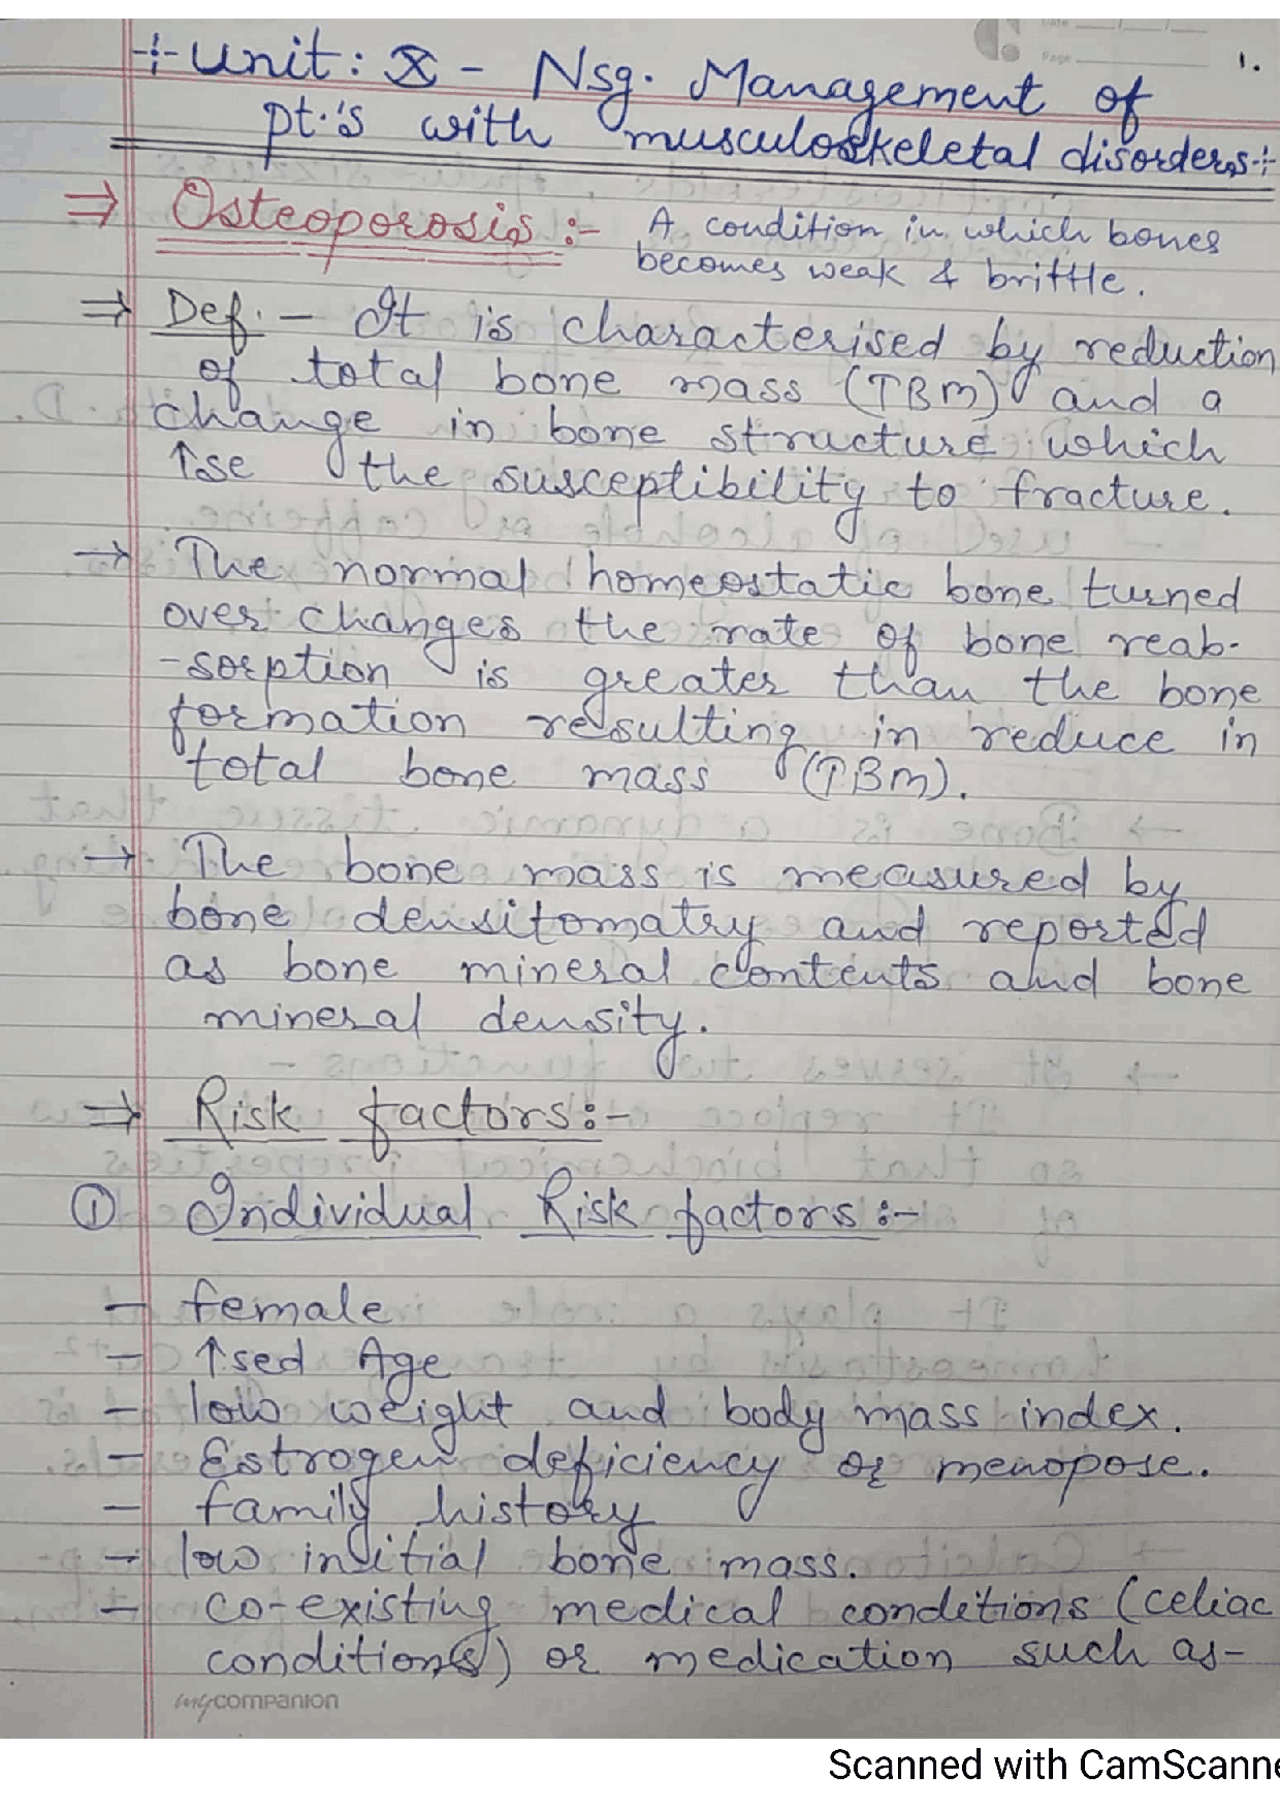 1.
÷ Unit: X - Nsg. Management of
pt.'s with musculoskeletal disorders ÷
⇒ Osteoporosis :- A condition in which bones
becomes weak & brittle.
⇒ Def. - It is characterised by reduction
of total bone mass (TBM) and a
change in bone structure which
↑se the susceptibility to fracture.
→ The normal homeostatic bone turned
over changes the rate of bone reab-
-sorption is greater than the bone
formation resulting in reduce in
total bone mass (TBM).
→ The bone mass is measured by
bone densitomatry and reported
as bone mineral contents and bone
mineral density.
⇒ Risk factors:-
① Individual Risk factors:-
- female
- ↑sed Age
- low weight and body mass index.
- Estrogen deficiency or menopose.
- family history
- low initial bone mass.
- co-existing medical conditions (celiac
conditions) or medication such as-
mycompanion
Scanned with CamScanne